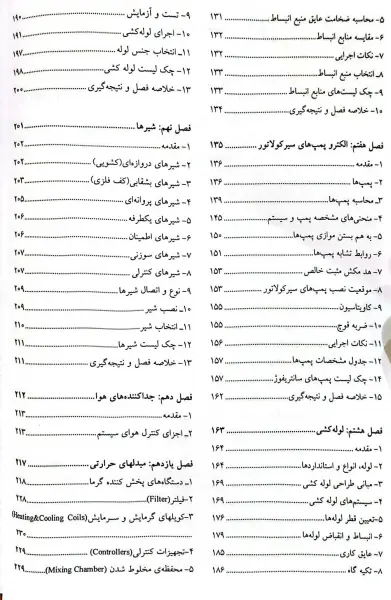 ۵- محاسبه ضخامت عایق منبع انبساط ........ ۱۳۱
۶- مقایسه منابع انبساط ........ ۱۳۲
۷- نکات اجرایی ........ ۱۳۲
۸- انتخاب منبع انبساط ........ ۱۳۳
۹- چک لیست‌های منابع انبساط ........ ۱۳۳
۱۰- خلاصه فصل و نتیجه‌گیری ........ ۱۳۴
فصل هفتم: الکترو پمپ‌های سیرکولاتور ........ ۱۳۵
۱- مقدمه ........ ۱۳۶
۲- پمپ‌ها ........ ۱۳۶
۳- محاسبه پمپ‌ها ........ ۱۳۹
۴- منحنی‌های مشخصه پمپ و سیستم ........ ۱۴۵
۵- به هم بستن موازی پمپ‌ها ........ ۱۵۰
۶- روابط تشابه پمپ‌ها ........ ۱۵۱
۷- هد مکش مثبت خالص ........ ۱۵۳
۸- موقعیت نصب پمپ‌های سیرکولاتور ........ ۱۵۳
۹- کاویتاسیون ........ ۱۵۵
۱۰- ضربه قوچ ........ ۱۵۵
۱۱- نکات اجرایی ........ ۱۵۶
۱۲- جدول مشخصات پمپ‌ها ........ ۱۵۷
۱۴- چک لیست پمپ‌های سانتریفوژ ........ ۱۵۷
۱۵- خلاصه فصل و نتیجه‌گیری ........ ۱۶۲
فصل هشتم: لوله‌کشی ........ ۱۶۳
۱- مقدمه ........ ۱۶۴
۲- لوله، انواع و استانداردها ........ ۱۶۴
۳- مبانی طراحی لوله کشی ........ ۱۶۹
۴- سیستم‌های لوله کشی ........ ۱۶۹
۵-تعیین قطر لوله‌ها ........ ۱۷۶
۶- انبساط و انقباض لوله‌ها ........ ۱۷۹
۷- عایق کاری ........ ۱۸۵
۸- تکیه گاه ........ ۱۸۶
۹- تست و آزمایش ........ ۱۹۰
۱۰- اجرای لوله‌کشی ........ ۱۹۱
۱۱- انتخاب جنس لوله ........ ۱۹۷
۱۲- چک لیست لوله کشی ........ ۱۹۸
۱۳- خلاصه فصل و نتیجه‌گیری ........ ۲۰۰
فصل نهم: شیرها ........ ۲۰۱
۱- مقدمه ........ ۲۰۲
۲- شیرهای دروازه‌ای(کشویی) ........ ۲۰۲
۳- شیرهای بشقابی(کف فلزی) ........ ۲۰۳
۴- شیرهای پروانه‌ای ........ ۲۰۵
۵- شیرهای یکطرفه ........ ۲۰۶
۶- شیرهای اطمینان ........ ۲۰۶
۷- شیرهای سوزنی ........ ۲۰۷
۸- شیرهای کنترلی ........ ۲۰۷
۹- نوع و اتصال شیرها ........ ۲۰۹
۱۰- نصب شیر ........ ۲۰۹
۱۱- انتخاب شیر ........ ۲۱۰
۱۲- چک لیست شیرها ........ ۲۱۱
۱۳- خلاصه فصل و نتیجه‌گیری ........ ۲۱۱
فصل دهم: جداکننده‌های هوا ........ ۲۱۲
۱- مقدمه ........ ۲۱۳
۲- اجزای کنترل هوای سیستم ........ ۲۱۳
فصل یازدهم: مبدلهای حرارتی ........ ۲۱۷
۱- دستگاه‌های پخش کننده گرما ........ ۲۱۸
۲-فیلتر(Filter) ........ ۲۲۸
۳-کویلهای گرمایش و سرمایش(Heating&Cooling Coils)
........ ۲۳۰
۴-تجهیزات کنترلی(Controllers) ........ ۲۳۹
۵- محفظه‌ی مخلوط شدن (Mixing Chamber) ........ ۲۳۹